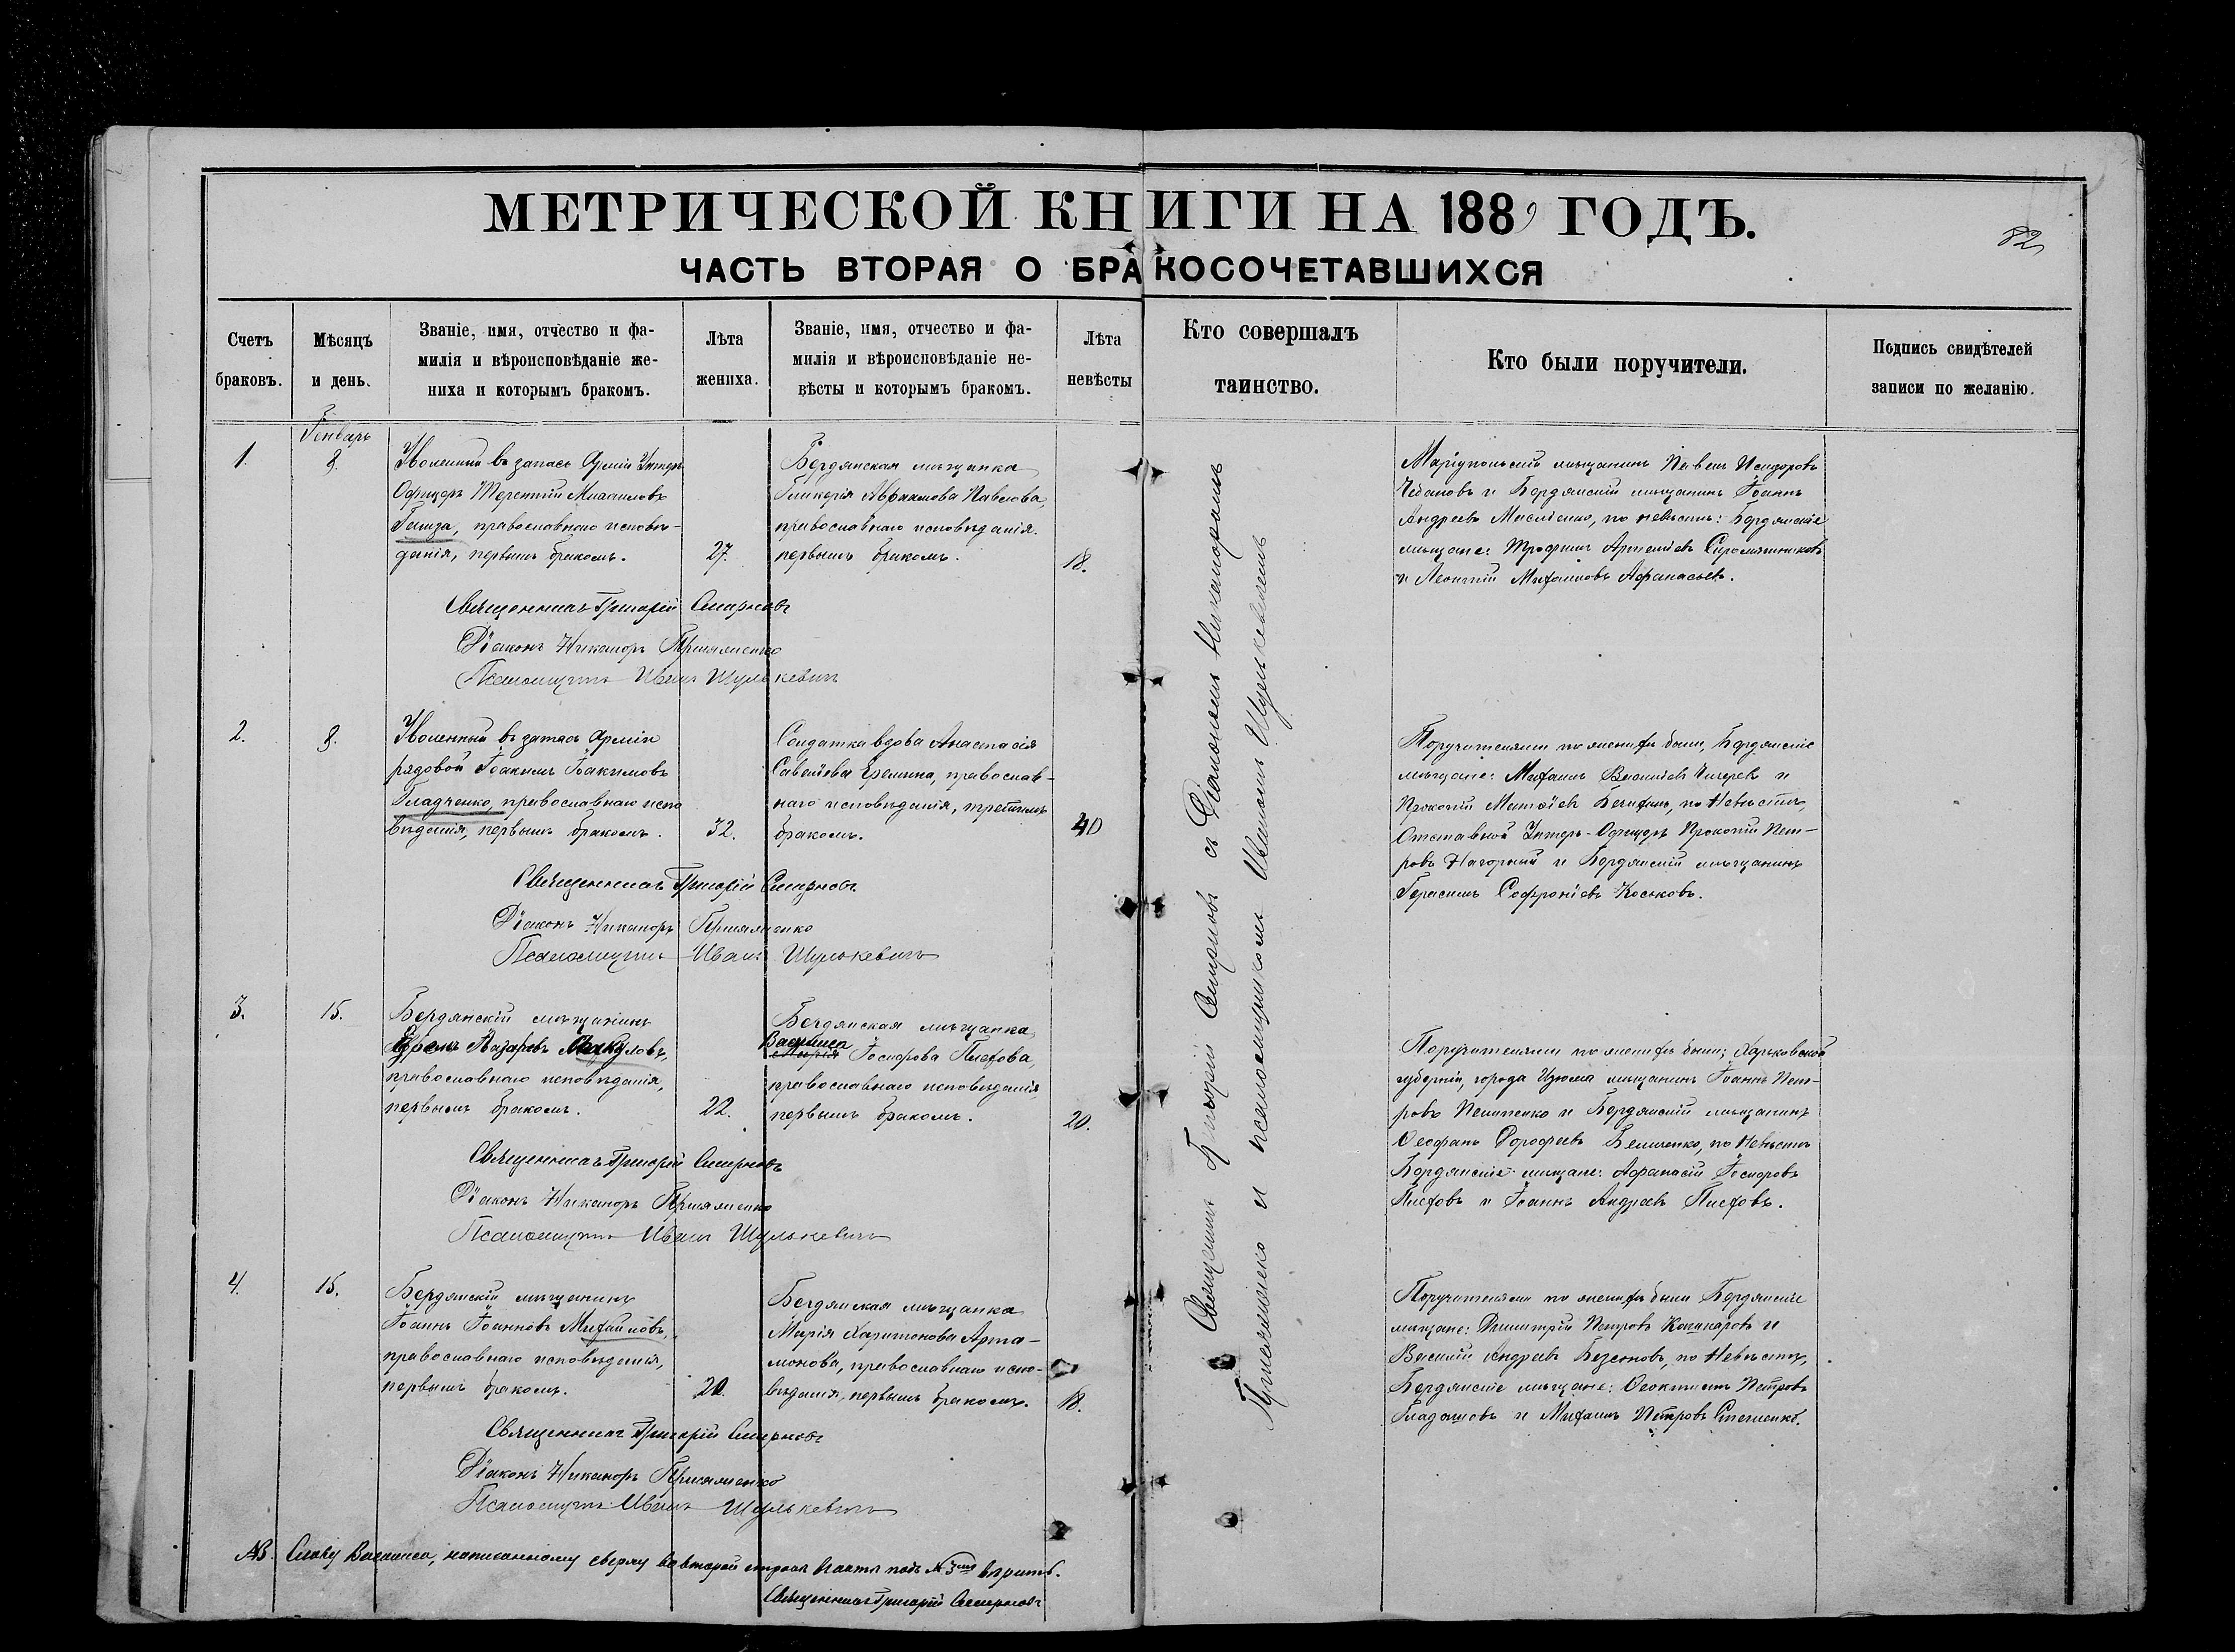 МЕТРИЧЕСКОЙ КНИГИ НА 1889 ГОДЪ.
82
ЧАСТЬ ВТОРАЯ О БРАКОСОЧЕТАВШИХСЯ
Счетъ браковъ.
Мѣсяцъ и день.
Званіе, имя, отчество и фа-
милія и вѣроисповѣданіе же-
ниха и которымъ бракомъ.
Лѣта жениха.
Званіе, имя, отчество и фа-
милія и вѣроисповѣданіе не-
вѣсты и которымъ бракомъ.
Лѣта невѣсты
Кто совершалъ
таинство.
Кто были поручители.
Подпись свидѣтелей
записи по желанію.
Генварь
1.
8.
Уволенный въ запасъ Арміи Унтеръ
Офицеръ Терентій
православнаго исповѣ-
данія, первымъ бракомъ.
27.
Бердянская мѣщанка
Гликерія Авраамова Павлова,
православнаго исповѣданія.
первымъ бракомъ.
18.
Маріупольскій мѣщанинъ Павелъ Исидоровъ
и Бердянскій мѣщанинъ Іоаннъ
Андреевъ по невѣстѣ: Бердянскіе
мѣщане: Трофимъ Артеміевъ Сыромятниковъ
и Леонтій Михаиловъ Афанасьевъ.
Священникъ Григорій Смирновъ
Діаконъ Никаноръ
Псаломщикъ Иванъ Шулькевичъ
2.
8.
Уволенный въ запасъ Арміи
рядовой Іоакимъ Іоакимовъ
Гладченко, православнаго испо
вѣданія, первымъ бракомъ.
32.
Солдатка вдова Анастасія
Савельева Еремина, православ-
наго исповѣданія, третьимъ
бракомъ.
40
Поручителями по женихѣ были, Бердянскіе
мѣщане: Михаилъ и
Прокопій по невѣстѣ,
Отставной Унтеръ-Офицеръ Прокопій Пет-
ровъ Нагорный и Бердянскій мѣщанинъ
Герасимъ Софроніевъ Коськовъ.
Священникъ Григорій Смирновъ
Діаконъ Никаноръ
Псаломщикъ Иванъ Шулькевичъ
3.
15.
Бердянскій мѣщанинъ
Лазаревъ
православнаго исповѣданія,
первымъ бракомъ.
22.
Бердянская мѣщанка
Василиса
Марія Іосифова Пиефова,
православнаго исповѣданія
первымъ бракомъ.
20.
Поручителями по женихѣ были; Харьковской
губерніи, города Изюма мѣщанинъ Іоаннъ Пет-
ровъ и Бердянскій мѣщанинъ
Феофанъ Дорофеевъ по невѣстѣ
Бердянскіе мѣщане: Афанасій Іосифовъ
Пиефовъ и Іоаннъ Андреевъ Пиефовъ.
Священникъ Григорій Смирновъ
Діаконъ Никаноръ
Псаломщикъ Иванъ Шулькевичъ
4.
15.
Бердянскій мѣщанинъ
Іоаннъ Іоанновъ Михайловъ,
православнаго исповѣданія,
первымъ бракомъ.
20.
Бердянская мѣщанка
Марія Харитонова Арта-
монова, православнаго испо-
вѣданія, первымъ бракомъ.
18.
Поручителями по женихѣ были Бердянскіе
мѣщане: Димитрій Петровъ и
Василій Андреевъ по невѣстѣ,
Бердянскіе мѣщане: Феоктистъ Петровъ
и Михаилъ Петровъ
Священникъ Григорій Смирновъ
Діаконъ Никаноръ
Псаломщикъ Иванъ Шулькевичъ
Священникъ Григорій Смирновъ съ Діакономъ Никаноромъ
и псаломщикомъ Иваномъ Шулькевичемъ
NB. Слову Василиса, написанному сверху во второй строкѣ въ актѣ подъ № 3мъ вѣрить.
Священникъ Григорій Смирновъ